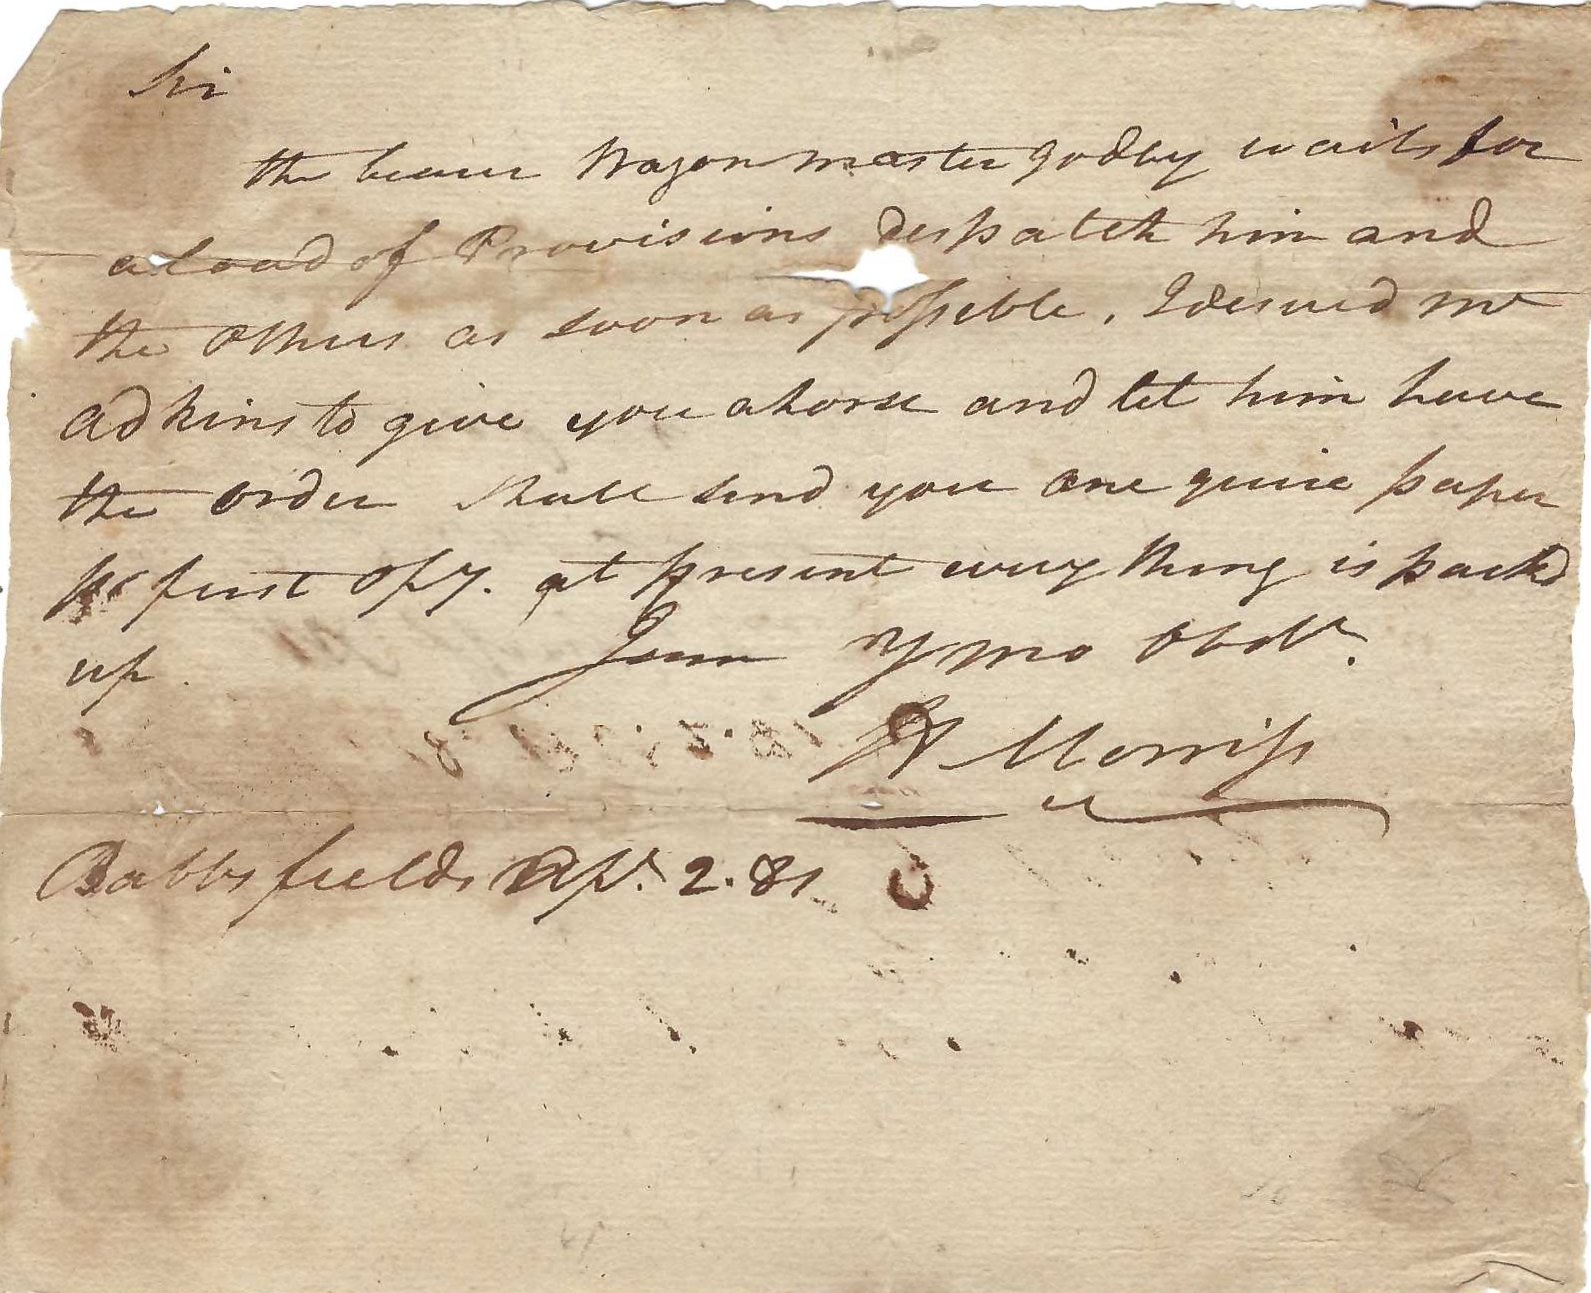 Sir
the bearer Wagon master godby waits for
a load of Provisions despatch him and
the others as soon as possible, I desired Mr
adkins to give you a horse and let him have
the order shall send you one quire paper
pr first opy. at present every thing is packd
up. I am Yr mo Obdt.
Morriss
Babbs fields Apl. 2. 81